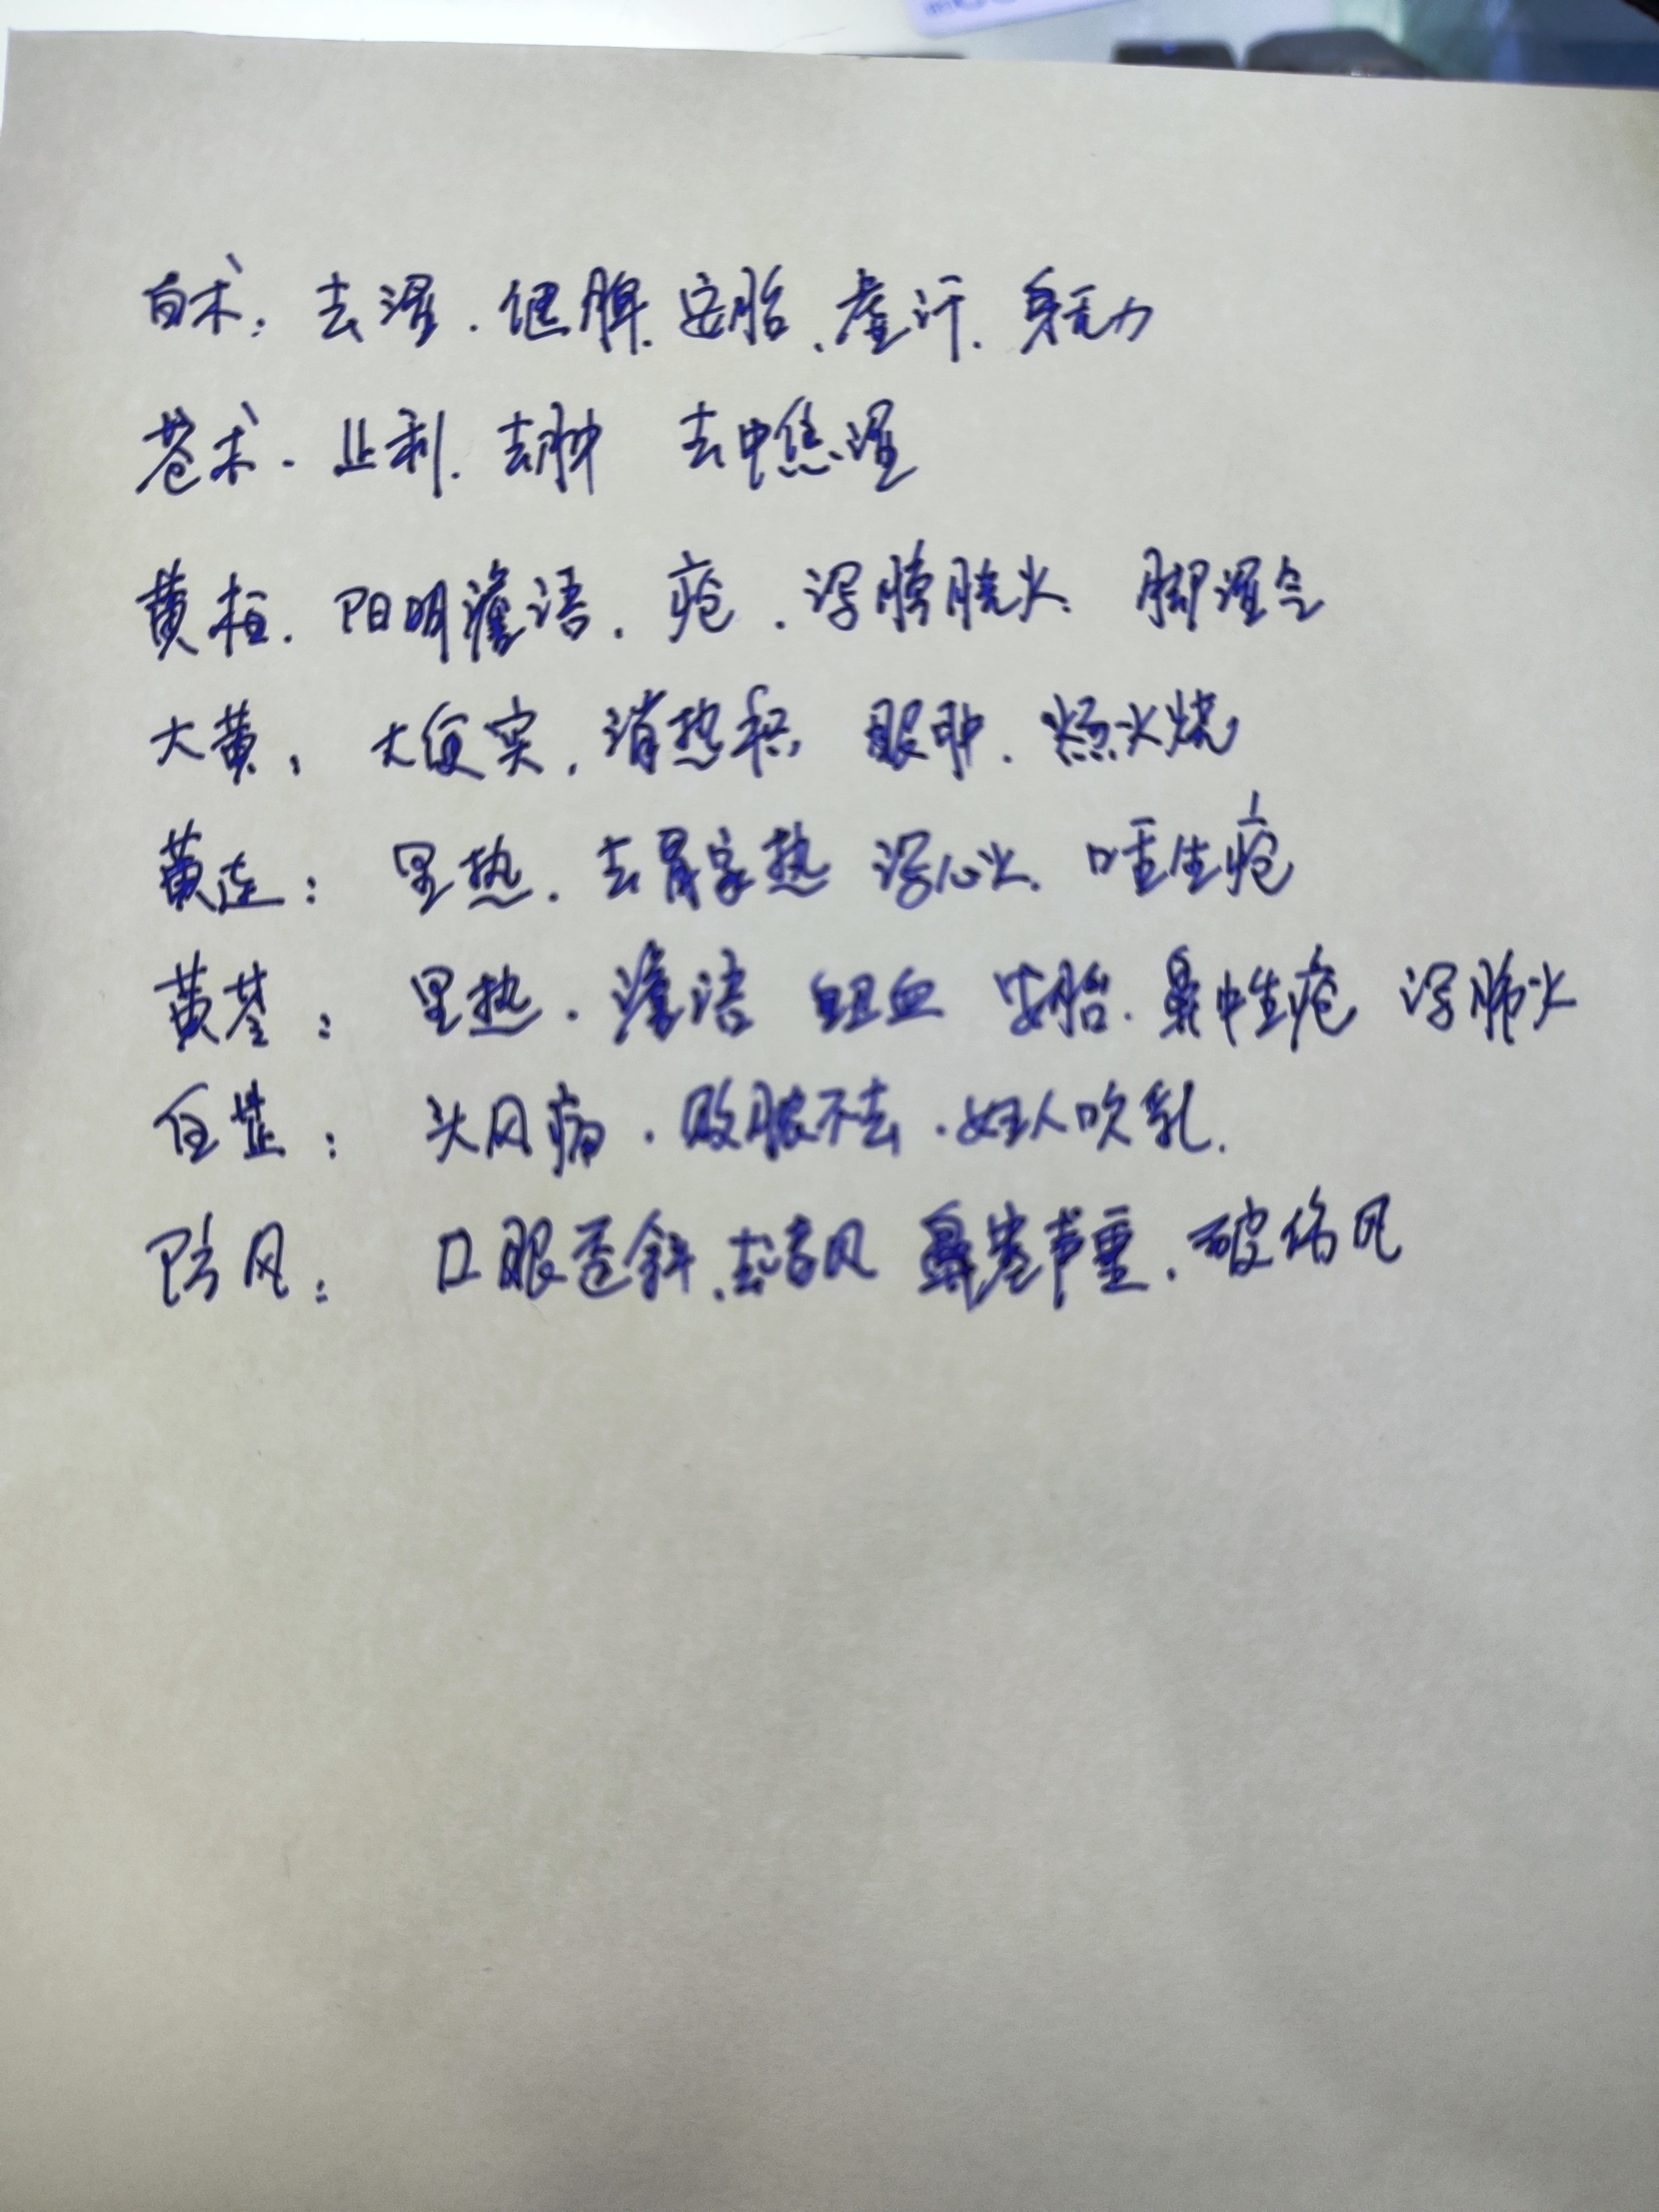 白术：去湿．健脾．安胎、虚汗．身无力
苍术．止利．去肿 去中焦湿
黄柏．阳明谵语．疮．泻膀胱火．脚湿气
大黄：大便实，消热积 眼肿．烫火烧
黄连：里热．去胃家热 泻心火．口舌生疮
黄芩：里热．谵语 衄血 安胎．鼻中生疮 泻肺火
白芷：头风病．败脓不去．妇人吹乳．
防风：口眼歪斜．去 风 鼻塞声重．破伤风